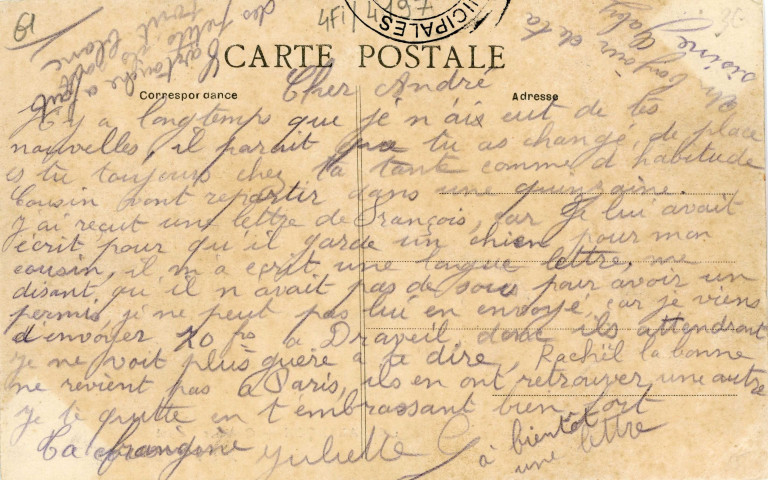 61
4Fi/4197
ICIPALES
36
Cartouche a fait
des petits
tout blanc
Un bonjour de ta
Gaby
CARTE POSTALE
Correspondance
Adresse
Cher André
Il y a longtemps que je n'aix eut de tes
nouvelles, il parait que tu as changé, de place
es tu toujours chez ta tante comme d habitude
Cousin vont repartir dans une quinzaine.
J'ai reçut une lettre de François, car je lui avait
écrit pour qu'il garde un chien pour mon
cousin, il m'a écrit une lague lettre, me
disant, qu'il n avait pas de sous pour avoir un
permis, je ne peut pas lui en envoyé, car je viens
d'envoyer 70 frs a Draveil, donc ils attendront
je ne voit plus guère à te dire, Rachïl la bonne
ne revient pas à Paris, ils en ont retrouver une autre
je te quitte en t'embrassant bien fort
Ta frangine Juliette
à bientôt
une lettre